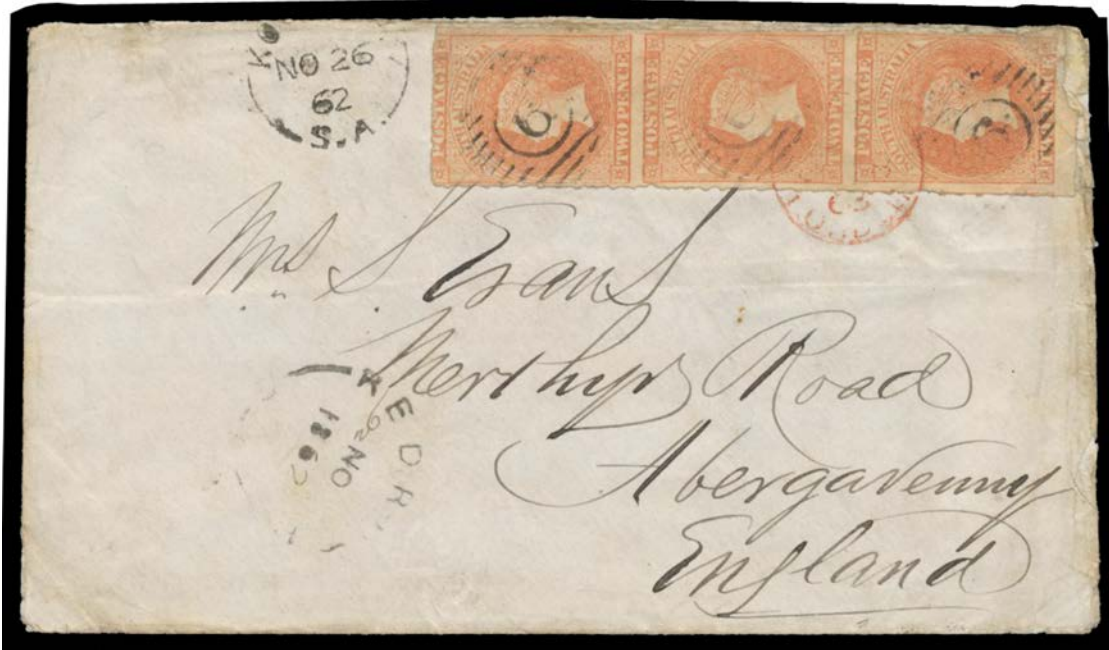 NO 26
62
S.A.
POSTAGE SOUTH AUSTRALIA TWO PENCE
POSTAGE SOUTH AUSTRALIA TWO PENCE
POSTAGE SOUTH AUSTRALIA
63
Mrs S Evans
Merthyr Road
Abergavenny
England
KEDR
NO
1862